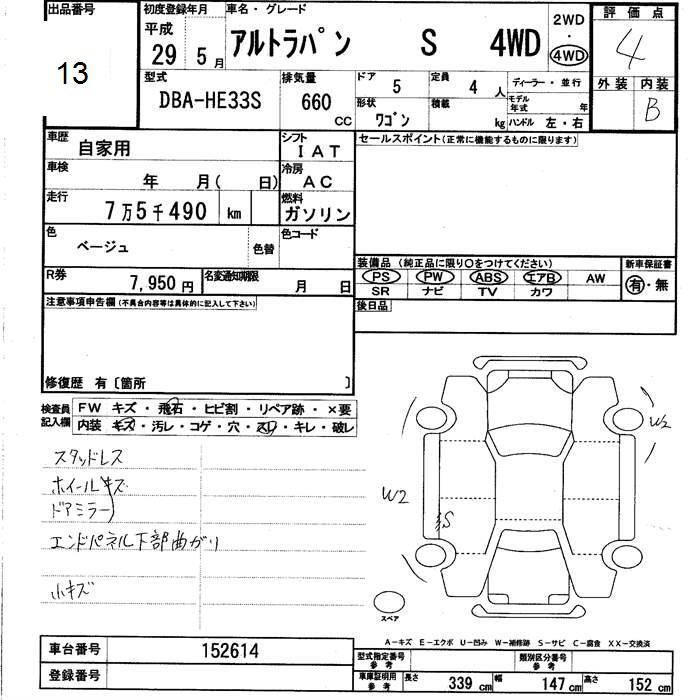 出品番号
13
初度登録年月
平成
29 5 月
車名・グレード
アルトラパン S 4WD
2WD
・
4WD
評価点
4
型式
DBA-HE33S
排気量
660 CC
ドア 5
定員 4 人
ディーラー・並行
形状 ワゴン
積載 kg
モデル年式 年
ハンドル 左・右
外装 内装
B
車歴 自家用
シフト IAT
セールスポイント(正常に機能するものに限ります)
車検 年 月( 日)
冷房 AC
走行 7万5千490 km
燃料 ガソリン
色 ベージュ 色替
色コード
R券 7,950 円
名変通知期限 月 日
装備品 (純正品に限り〇をつけてください)
PS PW ABS エアB AW
SR ナビ TV カワ
新車保証書
有・無
注意事項申告欄(不具合内容等は具体的に記入して下さい)
後日品
修復歴 有〔箇所 〕
検査員記入欄
FW キズ・飛石・ヒビ割・リペア跡・×要
内装 キズ・汚レ・コゲ・穴・スリ・キレ・破レ
スタッドレス
ホイールキズ
ドアミラー
エンドパネル下部曲がり
小キズ
W2
W2
S
スペア
A-キズ E-エクボ U-凹み W-補修跡 S-サビ C-腐食 XX-交換済
車台番号 152614
登録番号
型式指定番号 参考
類別区分番号 参考
車庫証明用 参考
長さ 339 cm
幅 147 cm
高さ 152 cm